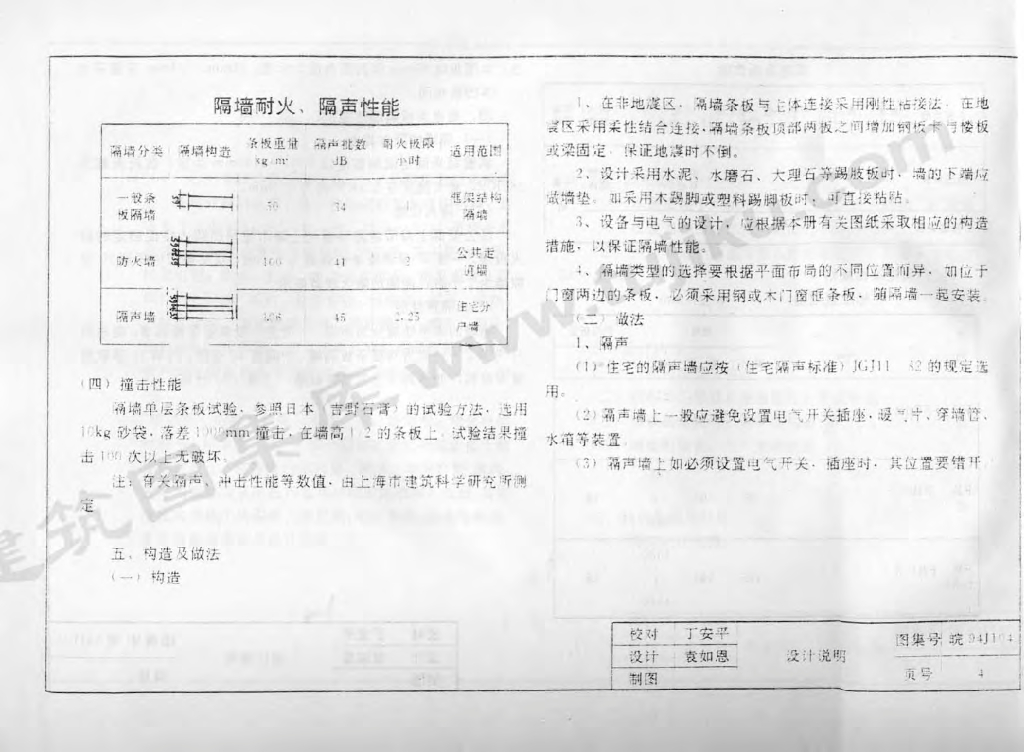 隔墙耐火、隔声性能
隔墙分类 隔墙构造 条板重量 隔声指数 耐火极限 适用范围
dB 小时
一般条板隔墙 34 框架结构隔墙
防火墙 160 41 2 公共走
隔声墙 45 2.25 住宅分户墙
（四）撞击性能
隔墙单层条板试验，参照日本（吉野石膏）的试验方法，选用
10kg 砂袋，落差1000mm 撞击，在墙高1/2 的条板上，试验结果撞
击100 次以上无破坏。
注：有关隔声、冲击性能等数值，由上海市建筑科学研究所测
定
五、构造及做法
（一）构造
1、在非地震区，隔墙条板与主体连接采用刚性粘接法，在地
震区采用柔性结合连接，隔墙条板顶部两板之间增加钢板卡与楼板
或梁固定，保证地震时不倒。
2、设计采用水泥、水磨石、大理石等踢脚板时，墙的下端应
做墙垫。如采用木踢脚或塑料踢脚板时，可直接粘贴。
3、设备与电气的设计，应根据本册有关图纸采取相应的构造
措施，以保证隔墙性能。
4、隔墙类型的选择要根据平面布局的不同位置而异，如位于
门窗两边的条板，必须采用钢或木门窗框条板，随隔墙一起安装。
（二）做法
1、隔声
（1）住宅的隔声墙应按（住宅隔声标准）JGJ11—82 的规定选
用。
（2）隔声墙上一般应避免设置电气开关插座，暖气片、穿墙管、
水箱等装置
（3）隔声墙上如必须设置电气开关、插座时，其位置要错开，
校对 丁安平
设计 袁如恩
制图
设计说明
图集号 皖94J104
页号 4
建筑图集库 www.tujiku.com